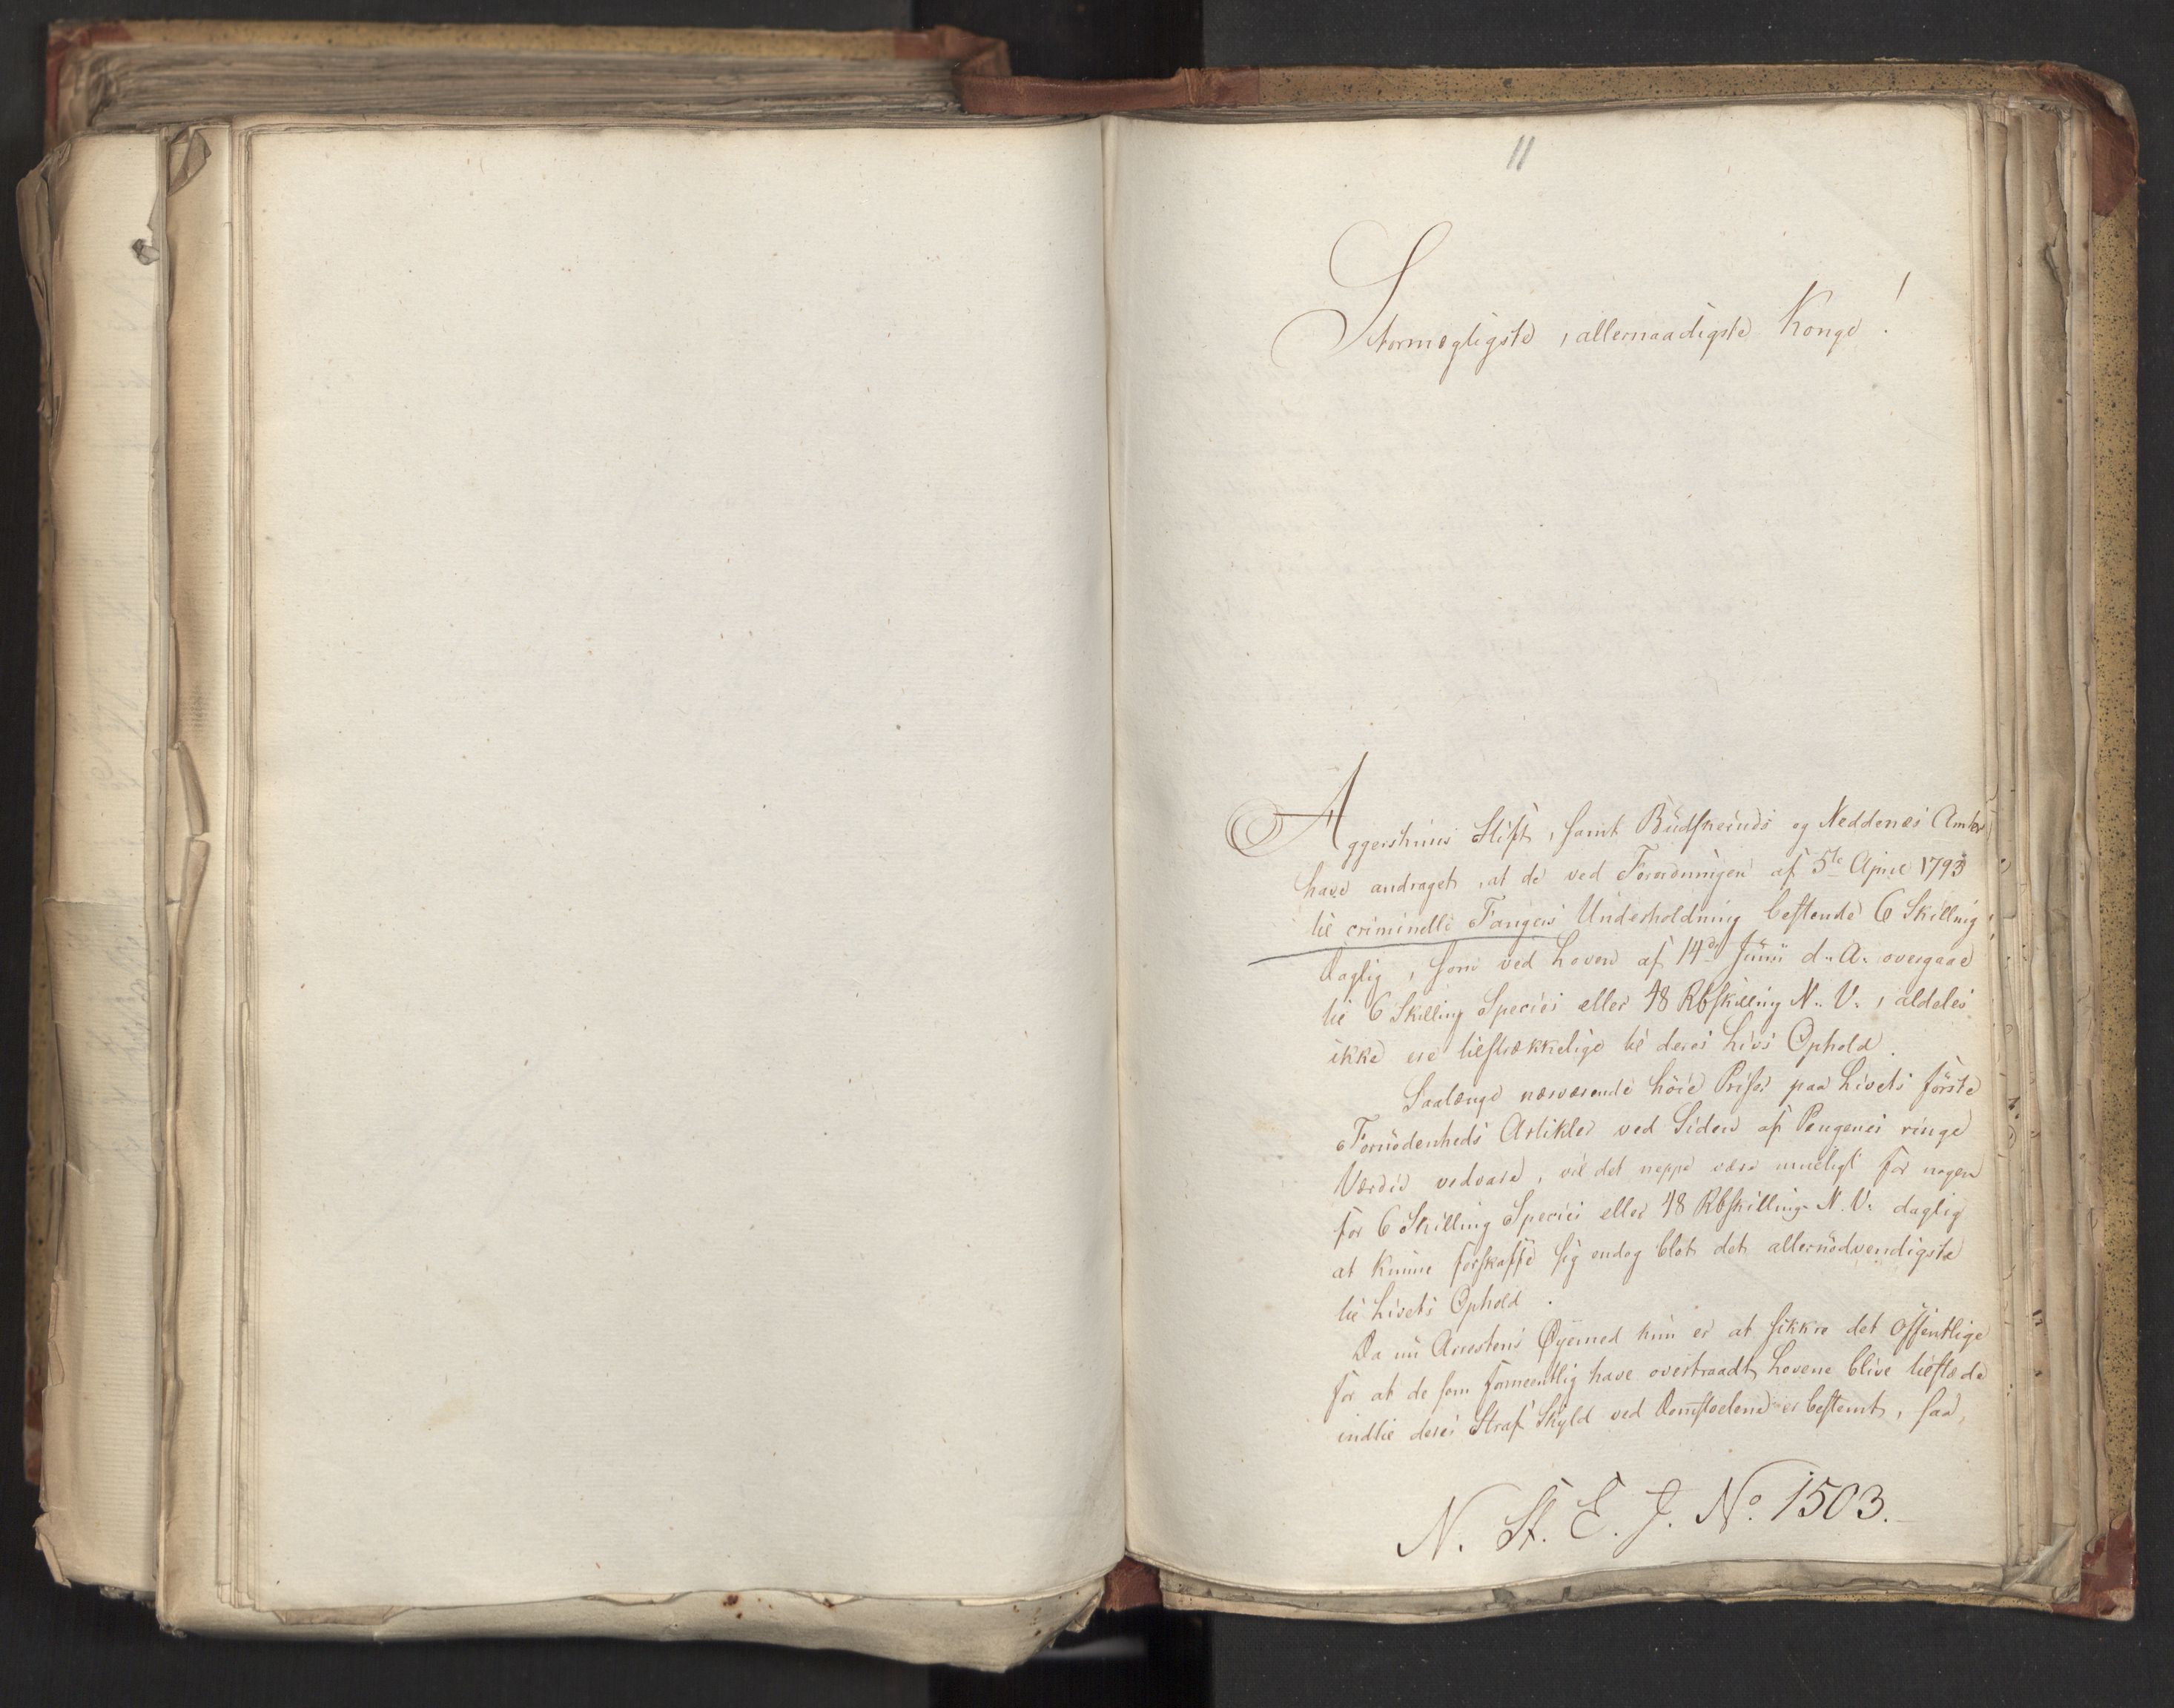 11
Stormægtigste, allernaadigste Konge!
Aggershuus Stift, samt Budskeruds og Neddenes Amter
have andraget, at de ved Forordningen af 5te April 1793
til criminelle Fangers Underholdning bestemte 6 Skilling
daglig, som ved Loven af 14de Junii d. A. overgaae
til 6 Skilling Species eller 48 Rbskilling N. V., aldeles
ikke ere tilstrækkelige til deres Livs Ophold.
Saalænge nærværende høie Priser paa Livets første
Fornødenheds Artikler ved Siden af Pengenes ringe
Værdie vedvare, vil det neppe være mueligt for nogen
for 6 Skilling Species eller 48 Rbskilling N. V. daglig
at kunne forskaffe sig endog blot det allernødvendigste
til Livets Ophold.
Da nu Arrestens Øyemed kun er at sikkre det offentlige
for at de som formeentlig have overtraadt Lovene blive tilstæde
indtil deres Straf Skyld ved Domstolene er bestemt, saa
N. St. E. J. No. 1503.